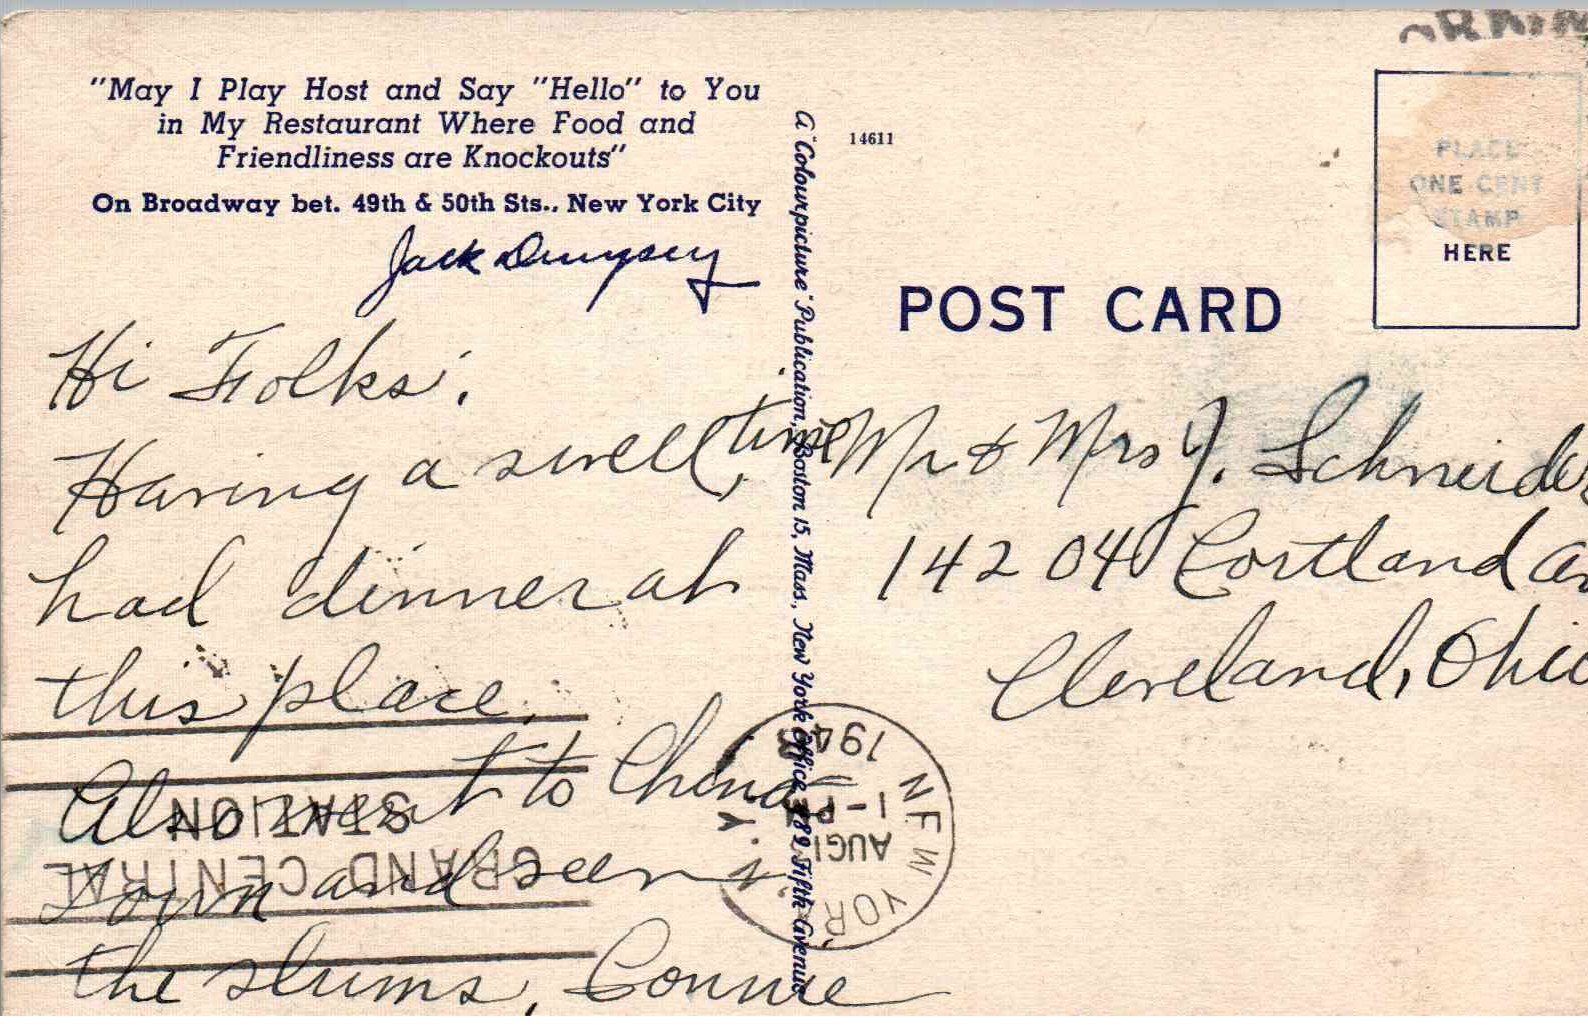 "May I Play Host and Say "Hello" to You
in My Restaurant Where Food and
Friendliness are Knockouts"
On Broadway bet. 49th & 50th Sts., New York City
Jack Dempsey
Hi Folks,
Having a swell time,
had dinner at
this place.
Also went to China
Town and seen
the slums, Connie
A "Colourpicture" Publication, Boston 15, Mass., New York Office, 482 Fifth Avenue
14611
PLACE
ONE CENT
STAMP
HERE
POST CARD
Mr & Mrs J. Schneider
14204 Cortland Av
Cleveland, Ohio
GRAND CENTRAL
STATION
NEW YORK, N.Y.
AUG 1
1-PM
194